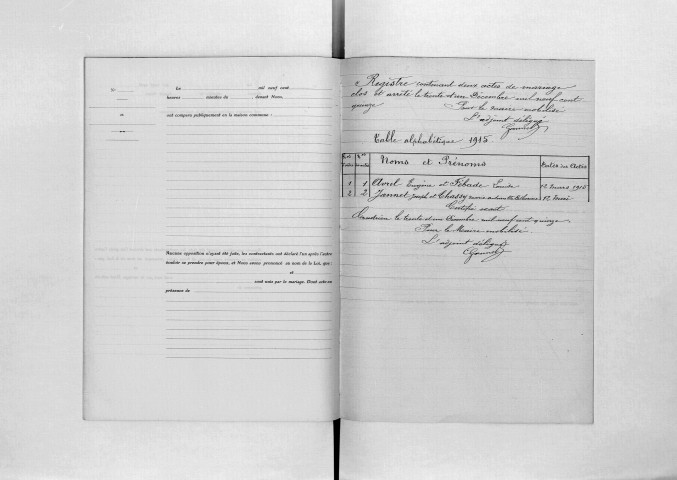 Le mil neuf cent
heures minutes du devant Nous,
ont comparu publiquement en la maison commune :
Aucune opposition n'ayant été faite, les contractants ont déclaré l'un après l'autre
vouloir se prendre pour époux, et Nous avons prononcé au nom de la Loi, que :
et
sont unis par le mariage. Dont acte en
présence de
Registre contenant deux actes de mariage
clos et arrêté le trente d'un Décembre mil neuf cent
quinze
Pour le maire mobilisé
L'adjoint délégué
Table alphabétique 1915
Noms et Prénoms Dates des Actes
1 1 Avril Eugène et Fébade mars 1915
2 2 Jannet Joseph et Chassy mai
Certifié exact
le trente d'un Décembre mil neuf cent quinze
Pour le Maire mobilisé
L'adjoint délégué